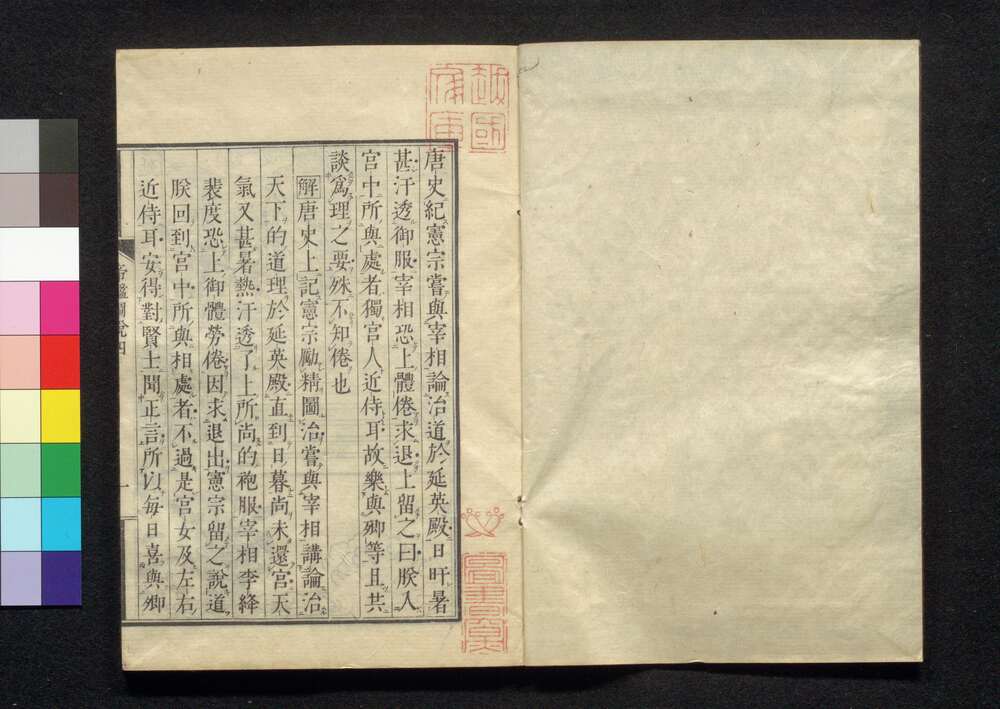 唐史紀憲宗嘗與宰相論治道於延英殿日旰暑
甚汗透御服宰相恐上體倦求退上留之曰朕入
宮中所與處者獨宮人近侍耳故樂與卿等且共
談爲理之要殊不知倦也
解唐史上記憲宗勵精圖治嘗與宰相講論治
天下的道理於延英殿直到日暮尚未還宮天
氣又甚暑熱汗透了上所尚的袍服宰相李絳
裴度恐上御體勞倦因求退出憲宗留之說道
朕回到宮中所與相處者不過是宮女及左右
近侍耳安得對賢士聞正言所以每日喜與卿
帝鑑圖說四
一